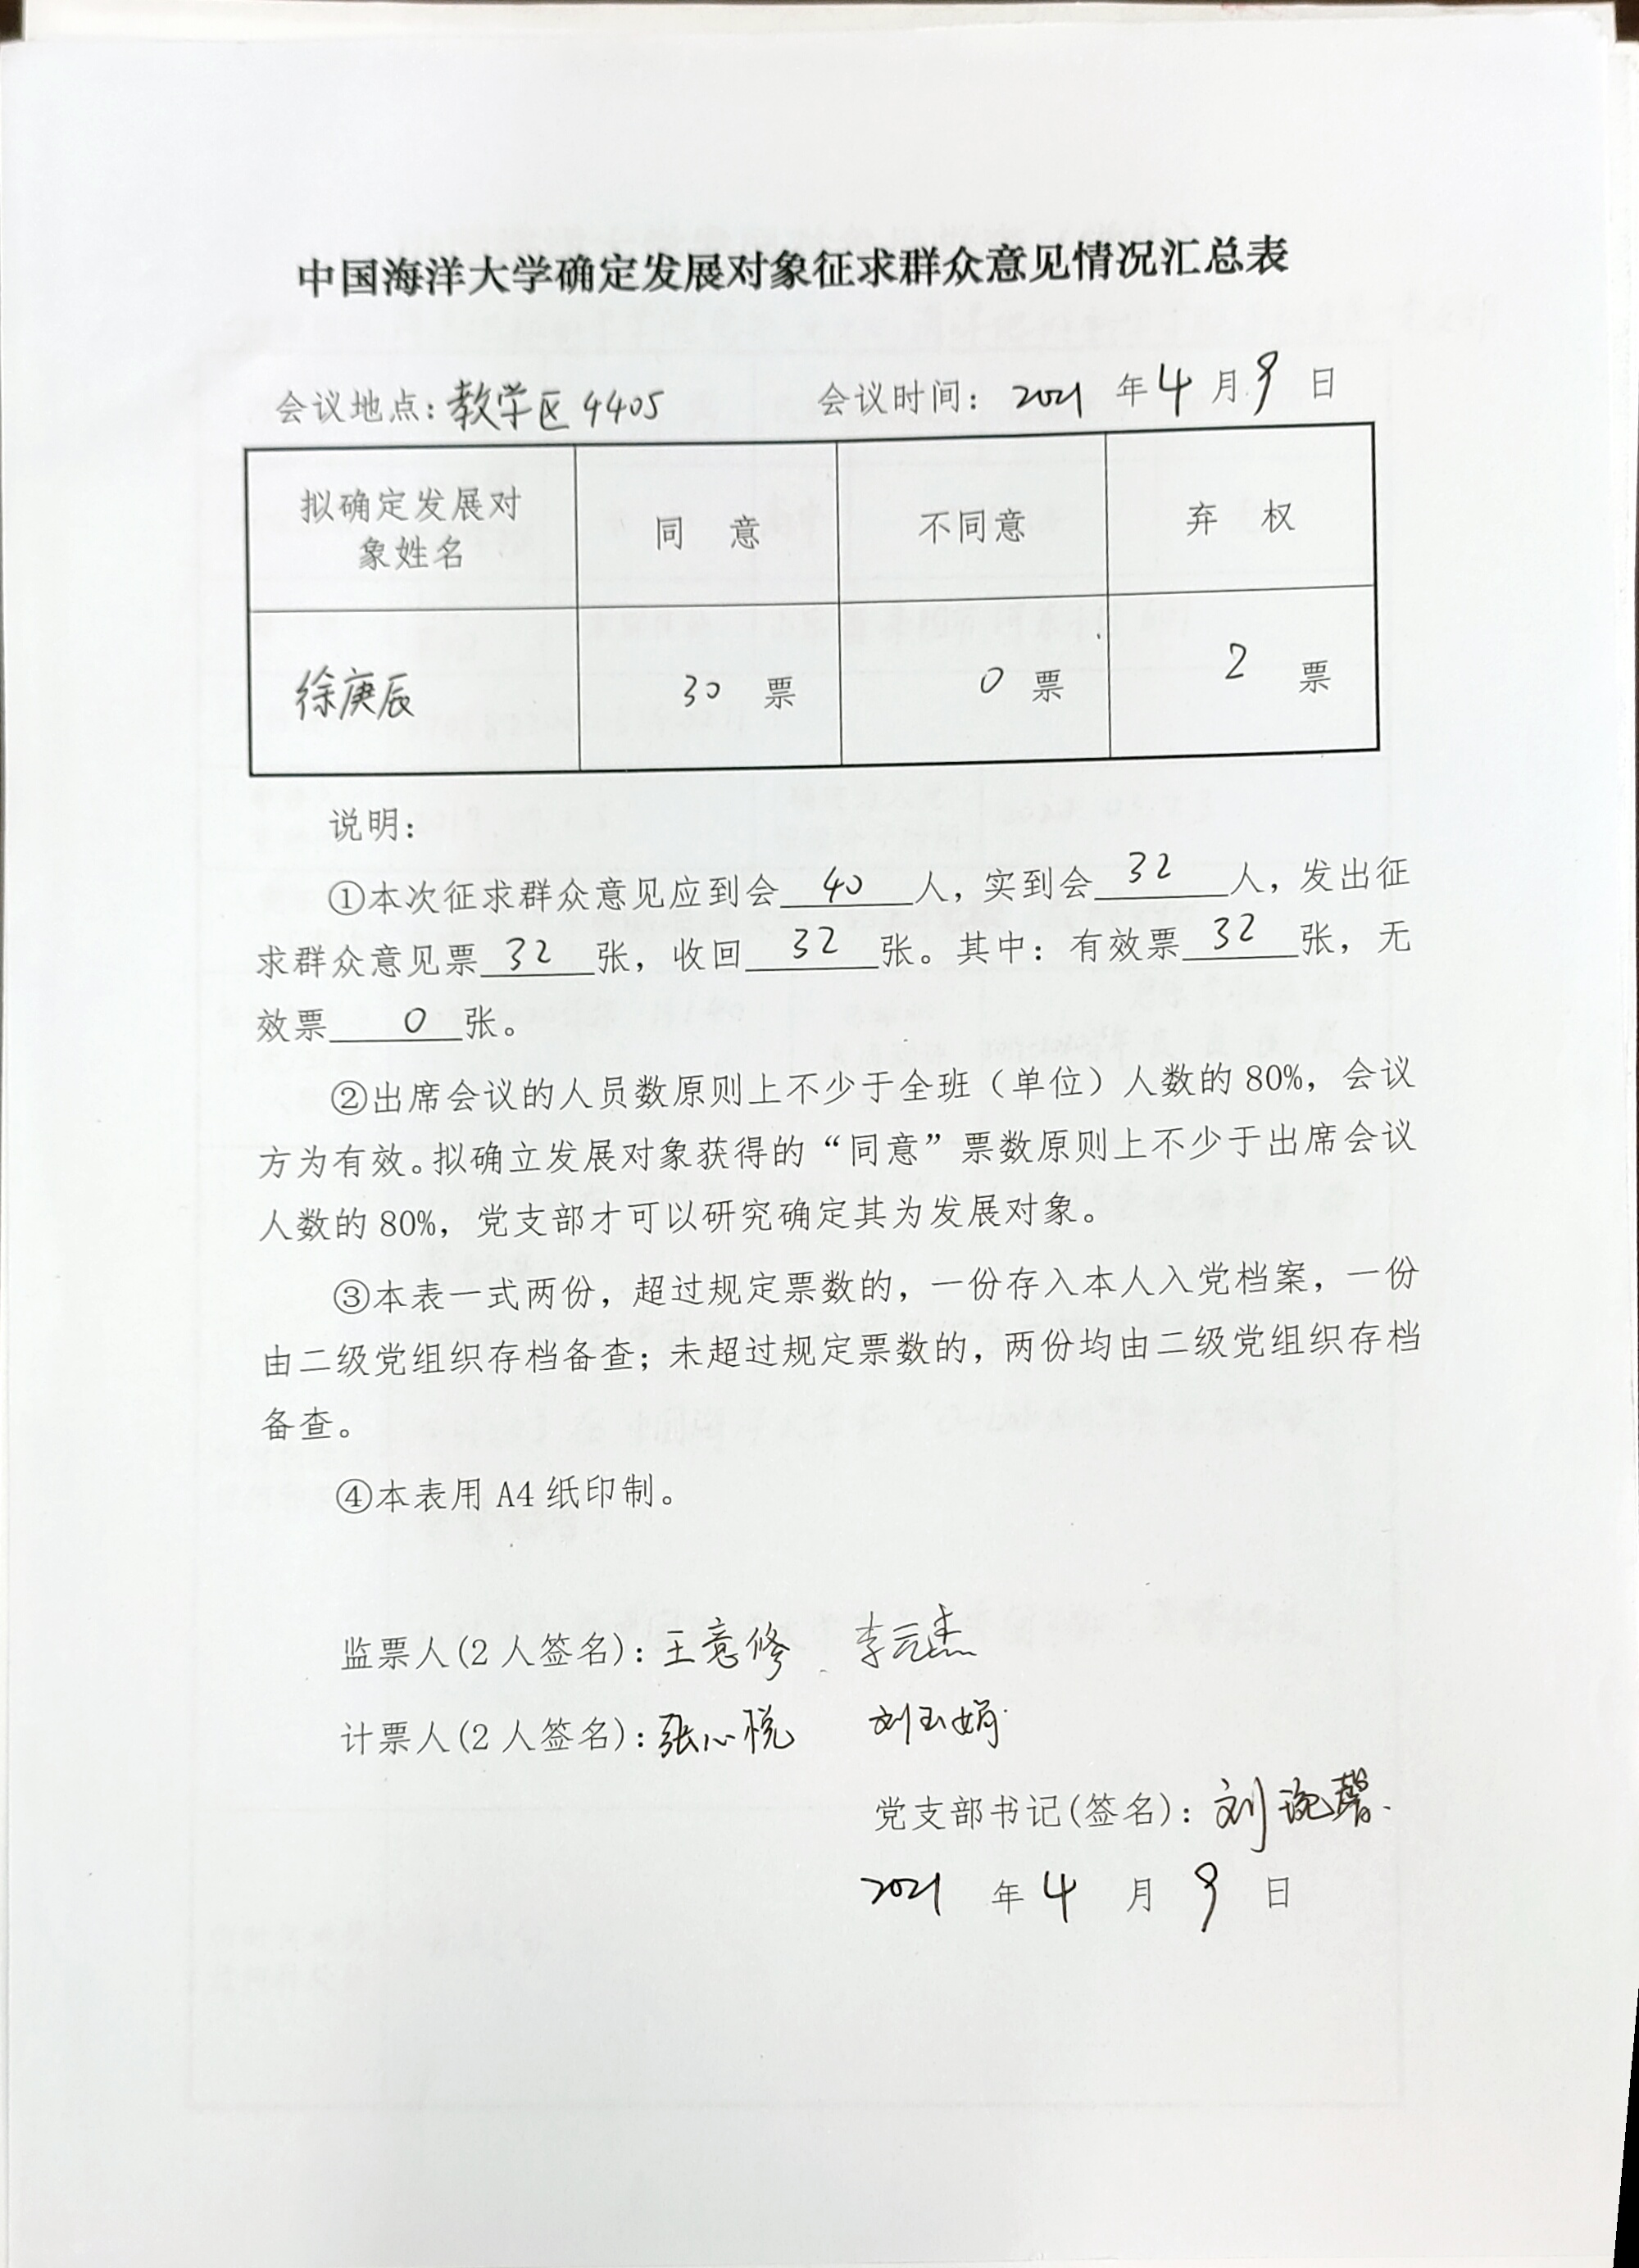 中国海洋大学确定发展对象征求群众意见情况汇总表
会议地点：教学区4405 会议时间： 2021 年 4 月 9 日
拟确定发展对
象姓名
同 意
不同意
弃 权
徐庚辰
30 票
0 票
2 票
说明：
①本次征求群众意见应到会 40 人，实到会 32 人，发出征
求群众意见票 32 张，收回 32 张。其中：有效票 32 张，无
效票 0 张。
②出席会议的人员数原则上不少于全班（单位）人数的 80%，会议
方为有效。拟确立发展对象获得的“同意”票数原则上不少于出席会议
人数的 80%，党支部才可以研究确定其为发展对象。
③本表一式两份，超过规定票数的，一份存入本人入党档案，一份
由二级党组织存档备查；未超过规定票数的，两份均由二级党组织存档
备查。
④本表用 A4 纸印制。
监票人(2 人签名)：王意修 李元杰
计票人(2 人签名)：张心悦 刘玉娟
党支部书记(签名)：刘琬馨
2021 年 4 月 9 日